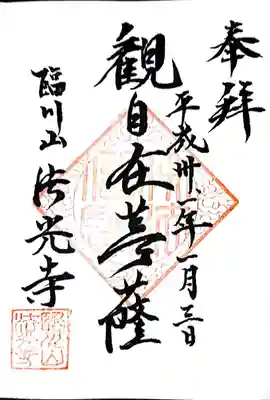 奉拝
平成卅一年一月三日
観自在菩薩
臨川山
法光寺